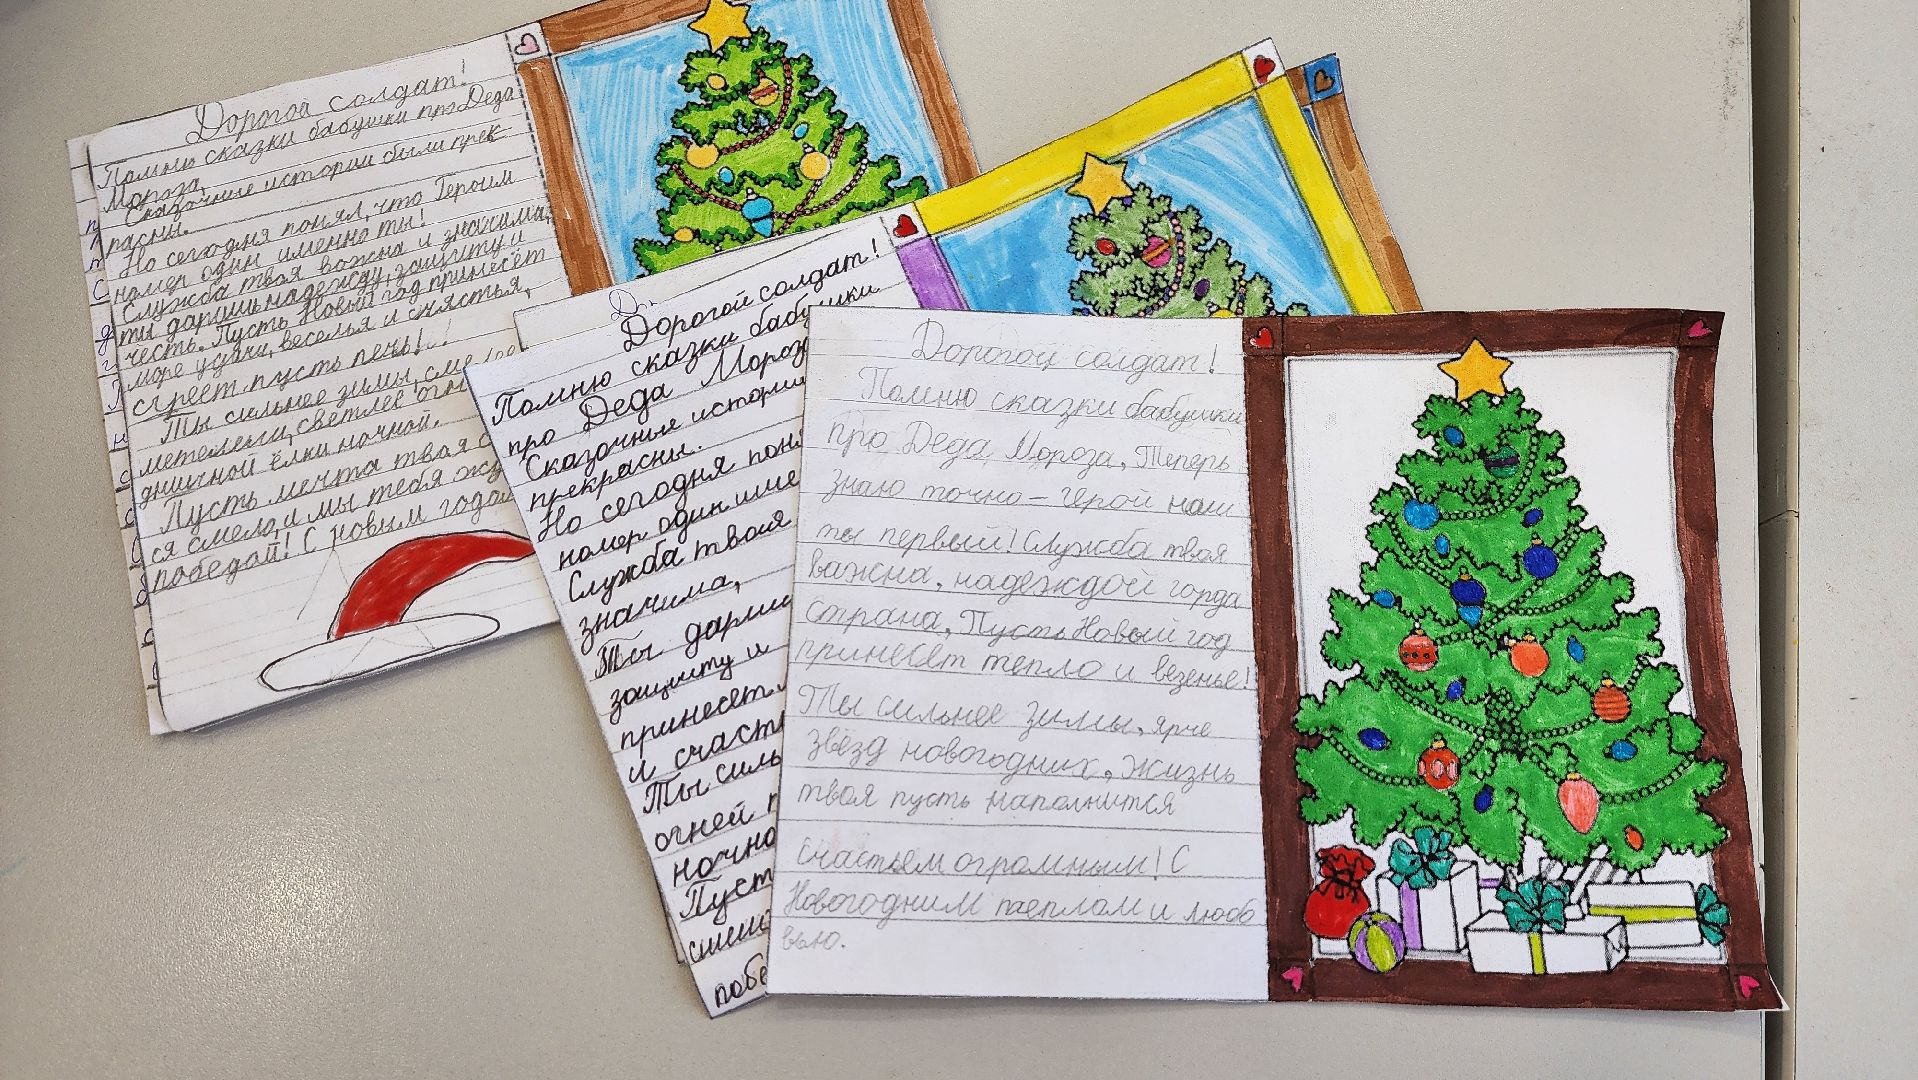 Дорогой солдат!
Помню сказки бабушки про Деда
Мороза,
Сказочные истории были прек-
расны.
Но сегодня понял, что Героим
номер один именно ты!
Служба твоя важна и значима,
ты даришь надежду, защиту и
честь. Пусть Новый год принесёт
море удачи, веселья и счястья,
сгреет пусть печь!
Ты сильнее зимы, сме
метелеи, светлее огн
дничной ёлки ночной.
Пусть мечта твоя с
ся смело, и мы тебя
победой! С новым годом
Дорогой солдат!
Помню сказки бабушки
про Деда Мороз
Сказочные истории
прекрасны.
Но сегодня поня
номер один име
Служба твоя
значима,
Ты дари
защиту и
принесет
и счаст
Ты силь
огней п
ночно
Пуст
побе
Дорогой солдат!
Помню сказки бабушки
про Деда Мороза, Теперь
знаю точно – герой наш
ты первый! Служба твоя
важна, надеждой горда
страна, Пусть Новый год
принесёт тепло и везенье!
Ты сильнее зимы, ярче
звёзд новогодних, Жизнь
твоя пусть наполнится
счастьем огромным! С
Новогодним теплом и любо
вью.